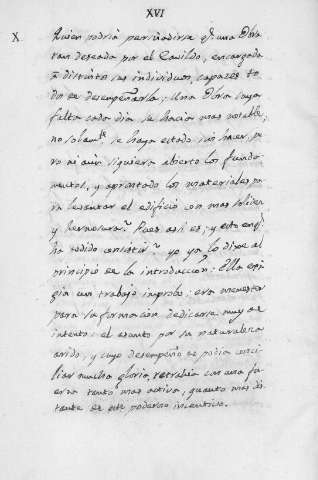 XVI
X. Quien podria persuadirse q.e una Obra
tan deseada por el Cavildo, encargada
a distintos sus individuos, capazes to
dos de desempeñarla; una Obra cuya
falta cada dia se hacia mas notable;
no solam.te se haya estado sin hacer, pe
ro ni aun siquiera abierto los funda
mentos, y aprontado los materiales pa
ra levantar el edificio con mas solidez
y hermosura? Pues asi es; y esto en q.e
ha podido consistir? yo ya lo dixe al
principio de la introduccion: Ella exi
gia un trabajo improbo; era menester
para su formacion dedicarse muy de
intento: el asunto por su naturaleza
arido, y cuyo desempeño no podia conci
liar mucha gloria, retrahia con una fu
erza tanto mas activa, quanto mas dis
tante de este poderoso incentivo.